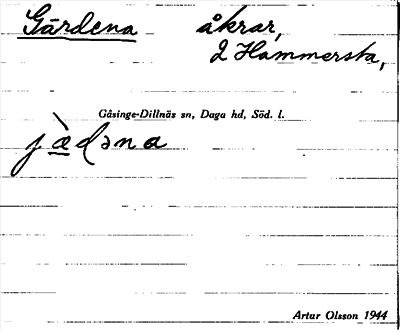 Gärdena åkrar,
2 Hammersta,
Gåsinge-Dillnäs sn, Daga hd, Söd. l.
jæ̀dəna
Artur Olsson 1944